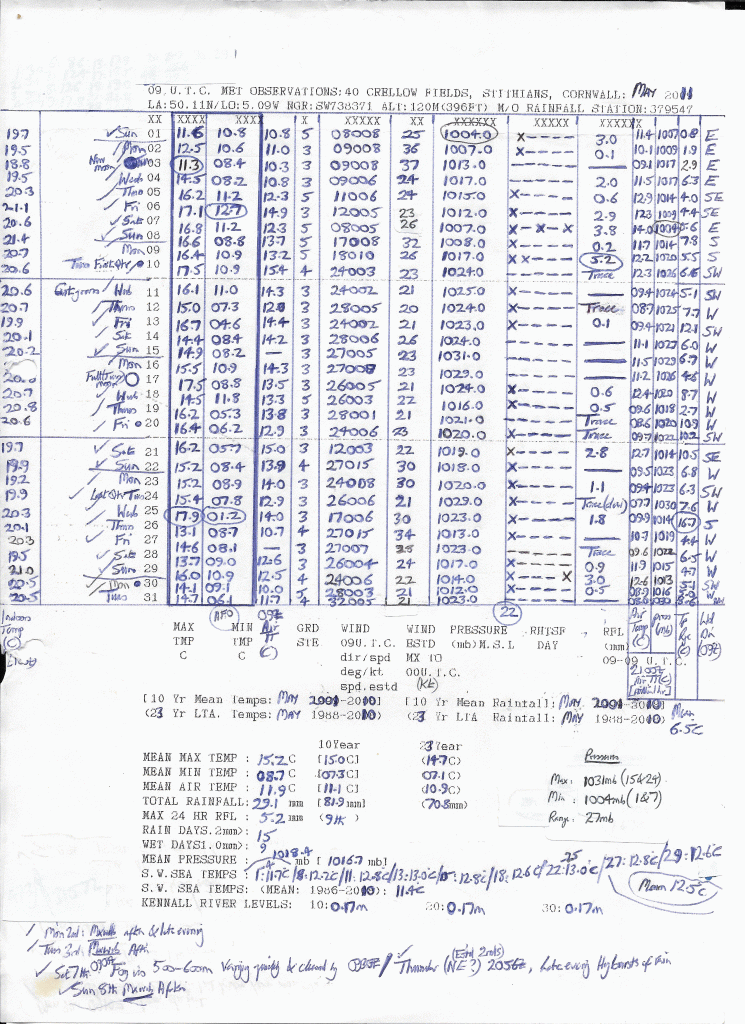 09 U.T.C. MET OBSERVATIONS: 40 CRELLOW FIELDS, STITHIANS, CORNWALL: MAY 2011
LA:50.11N/LO:5.09W NGR:SW738371 ALT:120M(396FT) M/O RAINFALL STATION:379547
XX XXXX XXXX X XXXXX XX XXXXXX XXXXX XXXXXX
19.7 Sun 01 11.6 10.8 10.8 5 08008 25 1004.0 X---- 3.0 11.4 1007 0.8 E
19.5 Mon 02 12.5 10.6 11.0 3 09008 36 1007.0 X---- 0.1 10.1 1009 1.9 E
18.8 New moon 03 11.3 08.4 10.3 3 09008 37 1013.0 ----- 09.1 1017 2.9 E
19.5 Wed 04 14.5 08.2 10.8 3 09006 24 1017.0 ----- 2.0 11.5 1017 6.3 E
20.3 Thu 05 16.2 11.2 12.3 5 11006 24 1015.0 X---- 0.6 12.9 1014 4.0 SE
21.1 Fri 06 17.1 12.7 14.9 3 12005 23 1012.0 ----- 2.9 12.3 1009 4.4 SE
20.6 Sat 07 16.8 11.2 12.3 5 08005 26 1007.0 X--X-X 3.8 14.0 1004 5.6 E
21.4 Sun 08 16.6 08.8 13.7 5 17008 32 1008.0 X---- 0.2 11.7 1014 7.8 S
20.7 Mon 09 16.4 10.9 13.2 5 18010 26 1017.0 XX--- 5.2 12.0 1020 5.5 S
20.6 Tues First Qtr 10 17.5 10.9 15.4 4 24003 23 1024.0 ----- Trace 12.3 1026 6.6 SW
20.6 Wed 11 16.1 11.0 14.3 3 24002 21 1025.0 X---- 09.4 1024 5.1 SW
20.7 Thu 12 15.0 07.3 12.8 3 28005 20 1024.0 X---- Trace 08.7 1025 7.7 W
19.9 Fri 13 16.7 04.6 14.4 3 24002 21 1023.0 X---- 0.1 09.4 1021 12.1 SW
20.1 Sat 14 14.4 08.4 14.2 3 28006 26 1024.0 ----- 11.1 1027 6.0 W
20.2 Sun 15 14.9 08.2 — 3 27005 23 1031.0 ----- 11.5 1029 6.7 W
Mon 16 15.5 10.9 14.3 3 27008 23 1029.0 ----- 11.2 1026 4.6 W
20.6 Full moon 17 17.5 08.8 13.5 3 26005 21 1024.0 X---- 0.6 12.4 1020 8.7 W
20.7 Wed 18 14.5 11.8 13.3 5 26003 22 1016.0 X---- 0.5 09.6 1018 2.7 W
20.8 Thu 19 16.2 05.3 13.8 3 28001 21 1021.0 ----- Trace 08.6 1020 10.9 W
20.6 Fri 20 16.4 06.2 12.9 3 24006 23 1020.0 X---- Trace 09.7 1022 10.2 SW
19.7 Sat 21 16.2 05.7 15.0 3 12003 22 1019.0 X---- 2.8 12.7 1014 10.5 SE
19.9 Sun 22 15.2 08.4 13.9 4 27015 30 1018.0 X---- 09.5 1023 6.8 W
19.2 Mon 23 15.2 08.9 14.0 3 24008 30 1020.0 X---- 1.1 09.4 1023 6.3 SW
19.9 Last Qtr Tues 24 15.4 07.8 12.9 3 26006 21 1029.0 X---- Trace(dew) 07.7 1030 7.6 W
20.3 Wed 25 17.9 01.2 14.0 3 17006 30 1023.0 X---- 1.8 09.9 1014 16.7 S
20.1 Thu 26 13.1 08.7 10.7 4 27015 34 1013.0 X---- 10.7 1019 4.4 W
20.3 Fri 27 14.6 08.1 — 3 27007 25 1023.0 ----- Trace 09.6 1022 6.5 W
19.5 Sat 28 13.7 09.0 12.6 3 26004 24 1017.0 X---- 0.9 11.9 1015 4.7 W
21.0 Sun 29 16.0 10.9 12.5 4 24006 22 1014.0 X----X 3.0 12.6 1013 5.1 SW
20.5 Mon 30 14.1 09.1 10.0 5 28003 21 1012.0 X---- 0.5 08.9 1016 W
20.5 Tues 31 14.7 06.1 11.7 4 32005 21 1023.0 X----
Indoor Temp (C) AFO 09Z Air 22
MAX MIN GRD WIND WIND PRESSURE RHTSF RFL
TMP TMP STE 09U.T.C. ESTD (mb)M.S.L DAY (mm)
C C (C) dir/spd MX TO 09-09 U.T.C.
deg/kt 00U.T.C.
spd.estd (Kt)
[10 Yr Mean Temps: MAY 2001-2010] [10 Yr Mean Rainfall: MAY 2001-2010]
(23 Yr LTA. Temps: MAY 1988-2010) (23 Yr LTA Rainfall: MAY 1988-2010) Mean 6.5C
10Year 23Year
MEAN MAX TEMP : 15.2C [15.0C] (14.7C)
MEAN MIN TEMP : 08.7C [07.3C] (07.1C)
MEAN AIR TEMP : 11.9C [11.1C] (10.9C)
TOTAL RAINFALL: 29.1 mm [81.9mm] (70.8mm)
MAX 24 HR RFL : 5.2 mm (9th)
RAIN DAYS.2mm): 15
WET DAYS1.0mm): 9
MEAN PRESSURE : 1018.4 mb [1016.7 mb]
Pressure
Max: 1031mb (15&24)
Min: 1004mb (1&7)
Range: 27mb
S.W.SEA TEMPS: 1:11.7C/8:12.2C/11:12.8C/13:13.0C/15:12.8C/18:12.6C/22:13.0C/27:12.8C/29:12.6C
S.W. SEA TEMPS: (MEAN: 1986-2010): 11.4C Mean 12.5C
KENNALL RIVER LEVELS: 10:0.17m 20:0.17m 30:0.17m
Mon 2nd: Murky after & late evening
Tues 3rd: Murky Aftn
Sat 7th: 0900Z Fog vis 500-600m Varying quickly & cleared by Thunder (NE?) 2056Z, Late evening Hvy bursts of rain
Sun 8th Murky Aftn